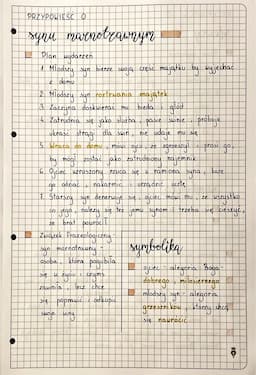 PRZYPOWIEŚĆ O
synu marnotrawnym
Plan wydarzeń
1. Młodszy syn bierze swoją część majątku by wyjechać
z domu
2. Młodszy syn roztrwania majątek
3. Zaczyna doskwierać mu bieda i głód
4. Zatrudnia się jako sługa, pasie świnie, próbuje
ukraść strąki dla świń, nie udaje mu się
5. Wraca do domu, mówi ojcu, że zgrzeszył i prosi go,
by mógł zostać jako zatrudniony najemnik
6. Ojciec wzruszony rzuca się w ramiona syna, każe
go odziać, nakarmić i urządzić ucztę
7. Starszy syn denerwuje się, ojciec mówi mu, że wszystko
co jego, należy się też jemu synom i trzeba się cieszyć,
że brat powrócił
Związek Frazeologiczny-
syn marnotrawny-
osoba, która pogubiła
się w życiu i czymś
zawiniła, lecz chce
się poprawić i odkupić
swoje winy
symbolika
ojciec - alegoria Boga-
dobrego, miłosiernego
młodszy syn - alegoria
grzeszników, którzy chcą
się nawrócić